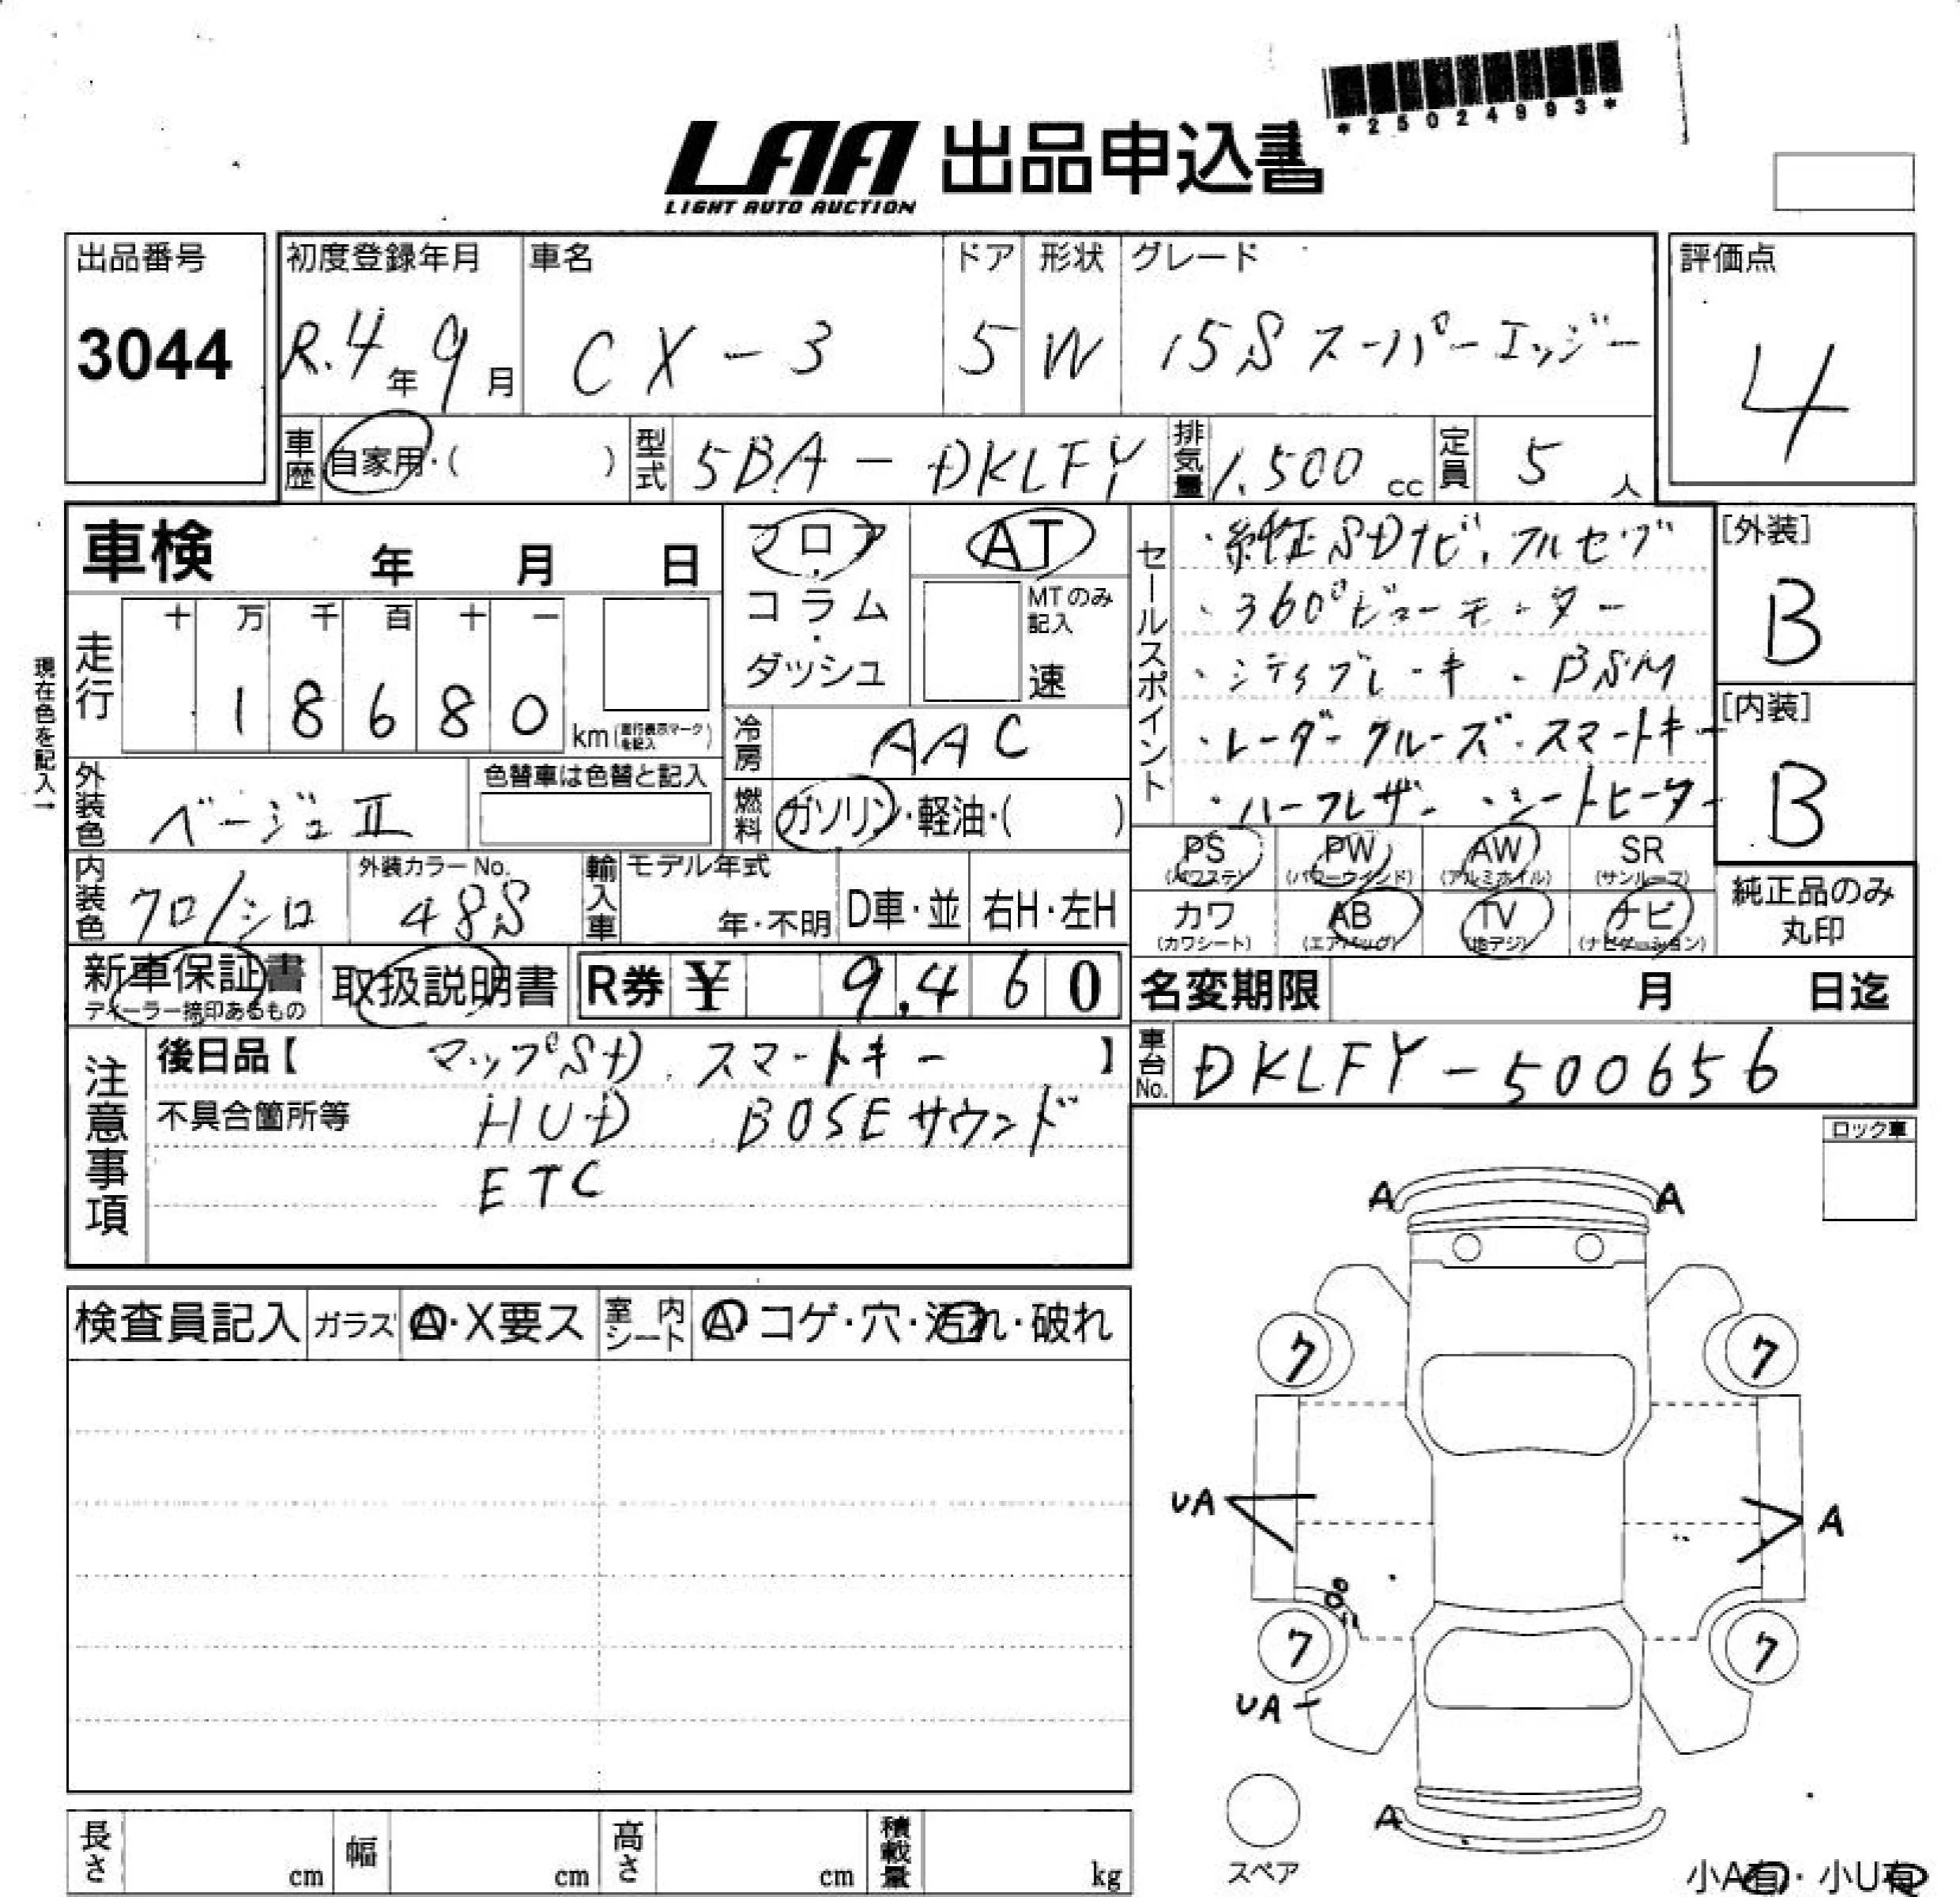 *25024993*
LAA 出品申込書
LIGHT AUTO AUCTION
出品番号
3044
初度登録年月
R.4年9月
車名
CX-3
ドア
5
形状
W
グレード
15S スーパーエッジー
評価点
4
車歴 自家用・( )
型式 5BA-DKLFY
排気量 1.500 cc
定員 5 人
車検 年 月 日
フロア・コラム・ダッシュ
AT
MTのみ記入
速
セールスポイント
・純正SDナビ、フルセグ
・360°ビューモニター
・シティブレーキ ・BSM
・レーダークルーズ・スマートキー
・ハーフレザー ・シートヒーター
[外装]
B
[内装]
B
走行
十 万 千 百 十 一
1 8 6 8 0
km(走行表示マークを記入)
現在色を記入→
冷房 AAC
外装色 ベージュⅡ
色替車は色替と記入
燃料 ガソリン・軽油・( )
内装色 クロ/シロ
外装カラーNo.
48S
輸入車
モデル年式
年・不明
D車・並
右H・左H
PS (パワステ)
PW (パワーウインド)
AW (アルミホイル)
SR (サンルーフ)
カワ (カワシート)
AB (エアバッグ)
TV (地デジ)
ナビ (ナビゲーション)
純正品のみ
丸印
新車保証書
ディーラー捺印あるもの
取扱説明書
R券 ¥ 9,460
名変期限 月 日迄
車台No. DKLFY-500656
注意事項
後日品【 マップSD、スマートキー 】
不具合箇所等 HUD BOSEサウンド
ETC
ロック車
A A
検査員記入 ガラス A・X要ス
室内シート A コゲ・穴・汚れ・破れ
7 7
UA A
7 7
UA
A
スペア
長さ cm
幅 cm
高さ cm
積載量 kg
小A有・小U有